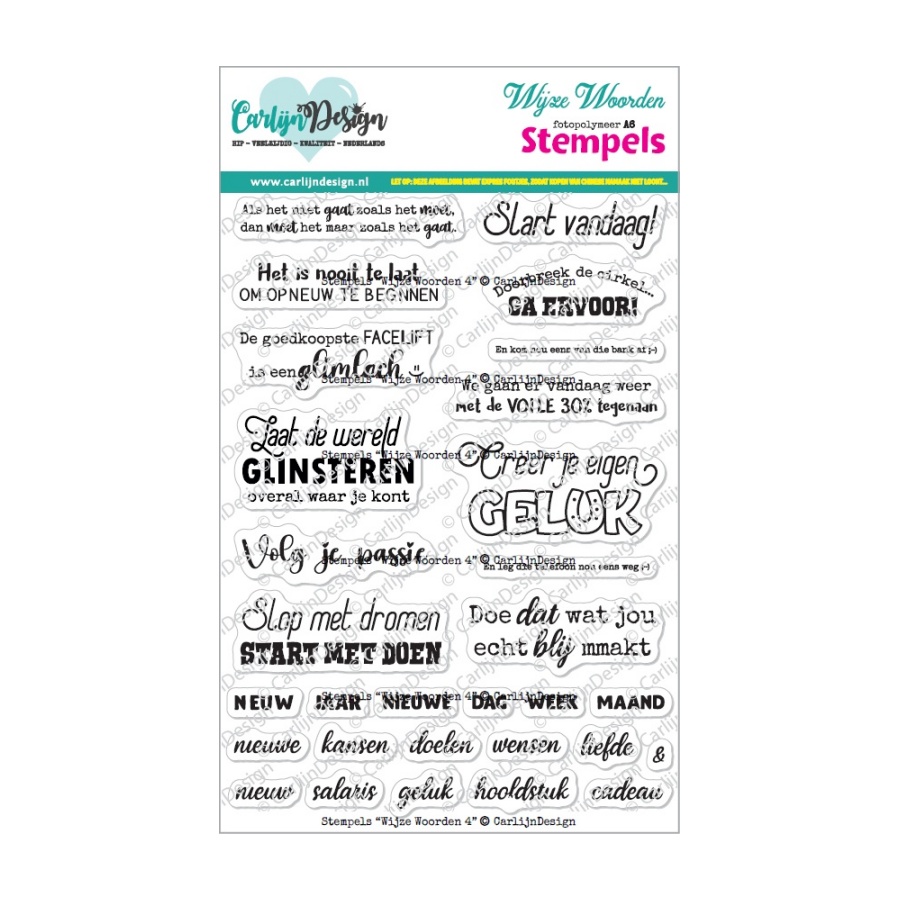 Carlijn Design
HIP – VEELZIJDIG – KWALITEIT – NEDERLANDS
Wijze Woorden
fotopolymeer A6
Stempels
www.carlijndesign.nl
LET OP: DEZE AFBEELDING BEVAT EXPRES FOUTJES, ZODAT KOPEN VAN CHINESE NAMAAK NIET LOONT...
Als het niet gaat zoals het moet,
dan moet het maar zoals het gaat.
Start vandaag!
Het is nooit te laat
OM OPNIEUW TE BEGINNEN
Stempels "Wijze Woorden 4" © CarlijnDesign
Doorbreek de cirkel...
GA ERVOOR!
De goedkoopste FACELIFT
is een glimlach
En kom nou eens van die bank af ;-)
Stempels "Wijze Woorden 4" © CarlijnDesign
We gaan er vandaag weer
met de VOLLE 30% tegenaan
Laat de wereld
GLINSTEREN
overal waar je kont
Stempels "Wijze Woorden 4" © CarlijnDesign
Creer je eigen
GELUK
Volg je passie
Stempels "Wijze Woorden 4" © CarlijnDesign
En leg die telefoon nou eens weg ;-)
Stop met dromen
START MET DOEN
Doe dat wat jou
echt blij mmakt
NEUW JAAR NIEUWE DAG WEEK MAAND
Stempels "Wijze Woorden 4" © CarlijnDesign
nieuwe kansen doelen wensen liefde &
nieuw salaris geluk hoofdstuk cadeau
Stempels "Wijze Woorden 4" © CarlijnDesign